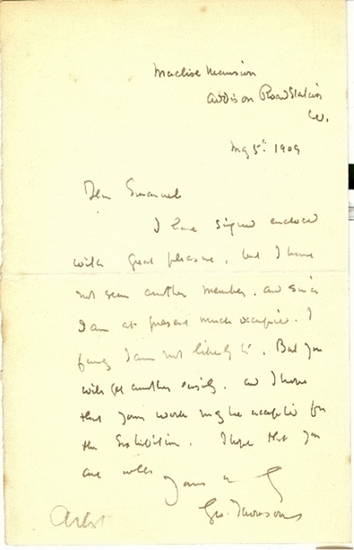 Maclise Mansion
Addison Road Station
W.
May 5th 1909
Dear Emanuel
I have signed enclosed
with great pleasure, but I have
not seen another member, and since
I am at present much occupied, I
fancy I am not likely to. But you
will get another easily, and I hope
that your work may be accepted for
the Exhibition. I hope that you
are well
Yours
Geo. Thomson
Artist